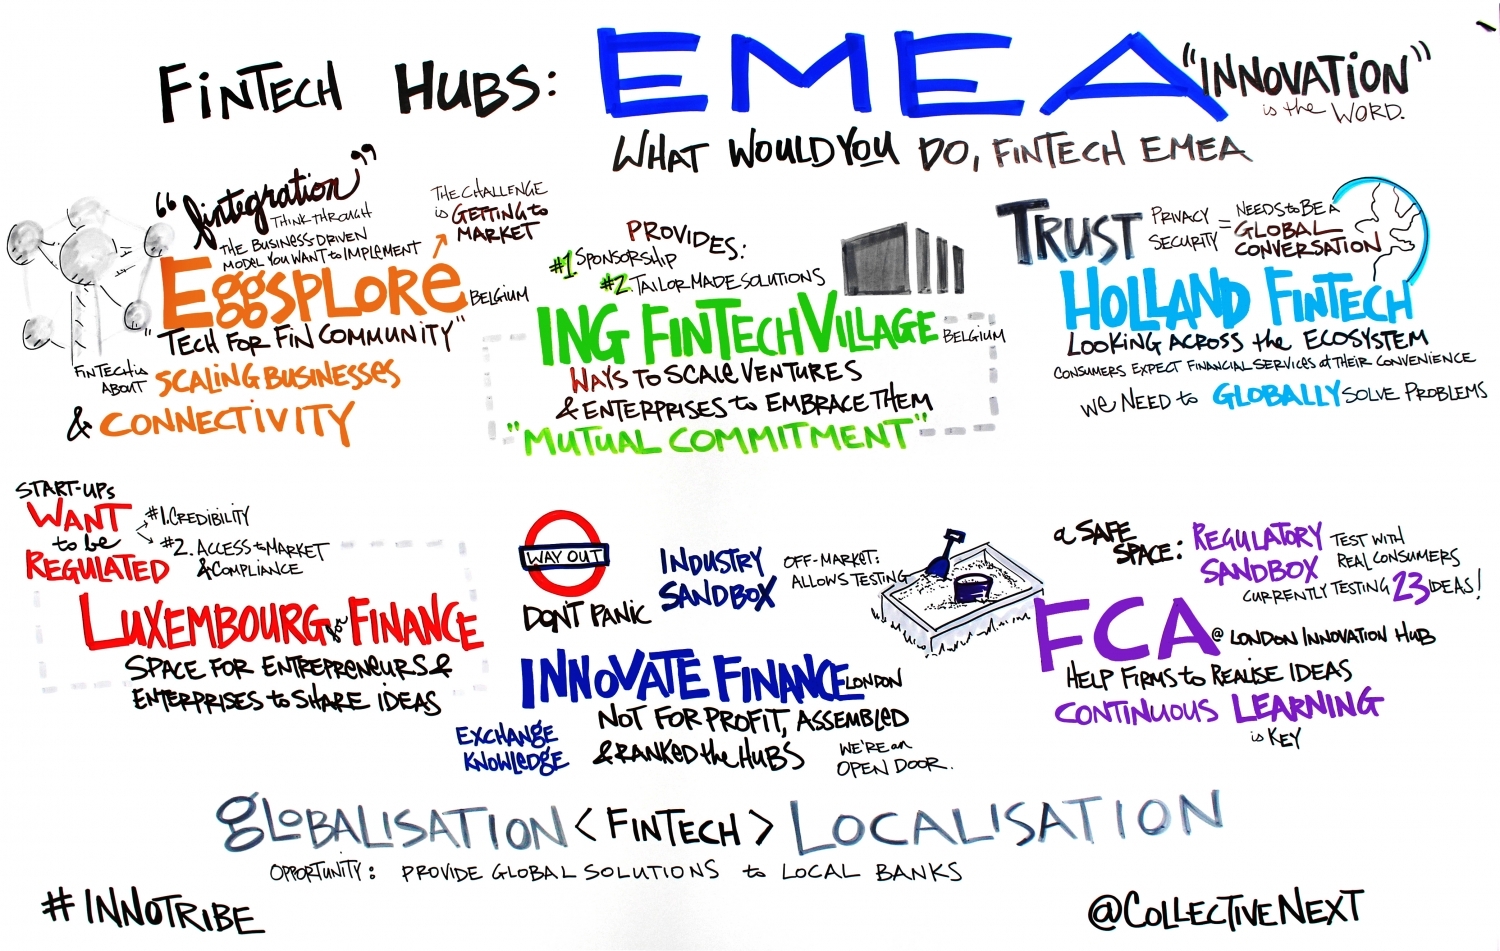 FINTECH HUBS: EMEA
"INNOVATION"
is the WORD.
WHAT WOULD YOU DO, FINTECH EMEA
"fintegration"
THINK THROUGH
THE BUSINESS DRIVEN
MODEL YOU WANT to IMPLEMENT
THE CHALLENGE
is GETTING to
MARKET
EggSPLORE BELGIUM
"TECH FOR FIN COMMUNITY"
FINTECH is
ABOUT SCALING BUSINESSES
& CONNECTIVITY
PROVIDES:
#1 SPONSORSHIP
#2. TAILOR MADE SOLUTIONS
ING FINTECH VILLAGE BELGIUM
WAYS TO SCALE VENTURES
& ENTERPRISES to EMBRACE THEM
"MUTUAL COMMITMENT"
TRUST
PRIVACY
SECURITY
= NEEDS to BE A
GLOBAL
CONVERSATION
HOLLAND FINTECH
LOOKING ACROSS the ECOSYSTEM
CONSUMERS EXPECT FINANCIAL SERVICES at THEIR CONVENIENCE
We NEED to GLOBALLY SOLVE PROBLEMS
START-UPs
WANT
to be
REGULATED
#1. CREDIBILITY
#2. ACCESS to MARKET
& COMPLIANCE
LUXEMBOURG for FINANCE
SPACE FOR ENTREPRENEURS &
ENTERPRISES to SHARE IDEAS
WAY OUT
DON'T PANIC
INDUSTRY
SANDBOX
OFF-MARKET:
ALLOWS TESTING
INNOVATE FINANCE LONDON
NOT FOR PROFIT, ASSEMBLED
& RANKED the HUBS
EXCHANGE
KNOWLEDGE
WE'RE an
OPEN DOOR.
a SAFE
SPACE:
REGULATORY
SANDBOX
TEST WITH
REAL CONSUMERS
CURRENTLY TESTING 23 IDEAS!
FCA @ LONDON INNOVATION HUB
HELP FIRMS to REALISE IDEAS
CONTINUOUS LEARNING
is KEY
GLOBALISATION < FINTECH > LOCALISATION
OPPORTUNITY: PROVIDE GLOBAL SOLUTIONS to LOCAL BANKS
#INNOTRIBE
@COLLECTIVENEXT